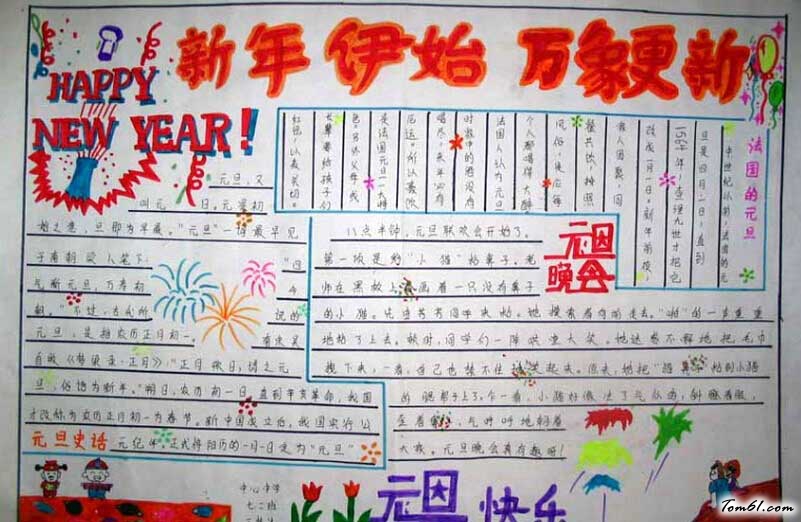 新年伊始 万象更新
HAPPY
NEW YEAR!
法国的元旦
中世纪以前,法国的元
旦是四月一日,直到
1564年,查理九世才把它
改成一月一日。新年前夜,
家人团聚,同
餐共饮,按照
风俗,
个人都喝得大醉
法国人认为元旦
时家中的酒没有
喝尽,来年必有
厄运。所以
是法国元旦一大特
色。另外父母或
长辈要给孩子们
红包,以表关切
元旦,又
叫元 日。元是初
始之意,旦即为早晨。"元旦"一词最早见
于南朝 人 笔下: "四
气新元旦,万寿初 今
朝。"不过,古代所 说的
元旦,是指农历正月初一。 有宋吴
自牧《梦粱录·正月》:"正月朔日,谓之元
旦,俗语为新年。"朔日,农历初一日 直到辛亥革命,我国
才改称为农历正月初一为春节。新中国成立后,我国实行公
元纪年。正式将阳历的一月一日定为"元旦"
元旦史话
元旦
晚会
八点半钟,元旦联欢会开始了。
第一项是为"小猪"粘鼻子。老
师在黑板上 画着一只没有鼻子
的小猪。先由芳芳同学来粘。她摸索着向前走去。"啪"的一声重重
地粘了上去。顿时,同学们一阵哄堂大笑。她迷惑不解地把毛巾
拽下来,一看,自己也禁不住 笑起来。原来,她把"猪鼻 粘到小猪
的 上了。乍一看,小猪好像 了气似的,斜瞪着眼,
歪着 ,气呼呼地朝着
大家。元旦晚会真有趣呀!
中心中学
七二班
元旦 快乐
Tom61.com